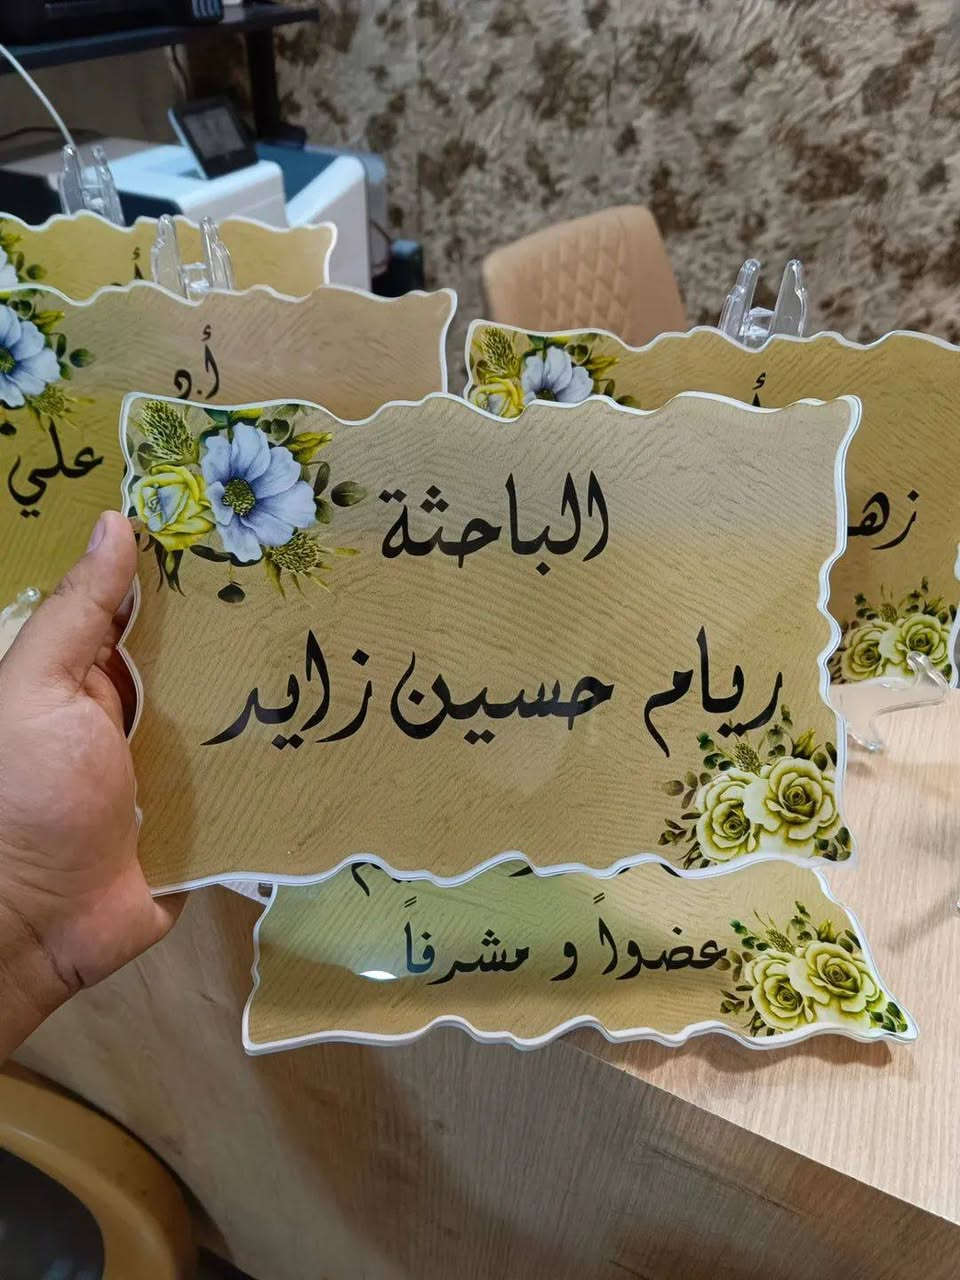 الباحثة
ريام حسين زايد
عضواً و مشرفاً
أ.د
علي